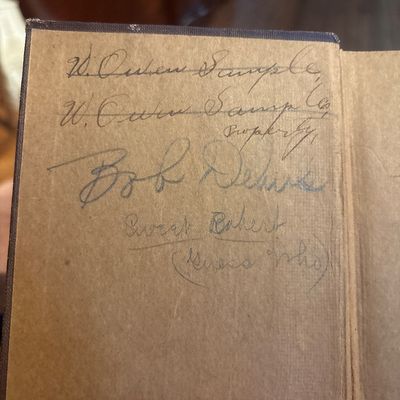 W. Owen Sample,
W. Owen Sample's
Property,
Bob
Sweet Robert
(Guess Who)